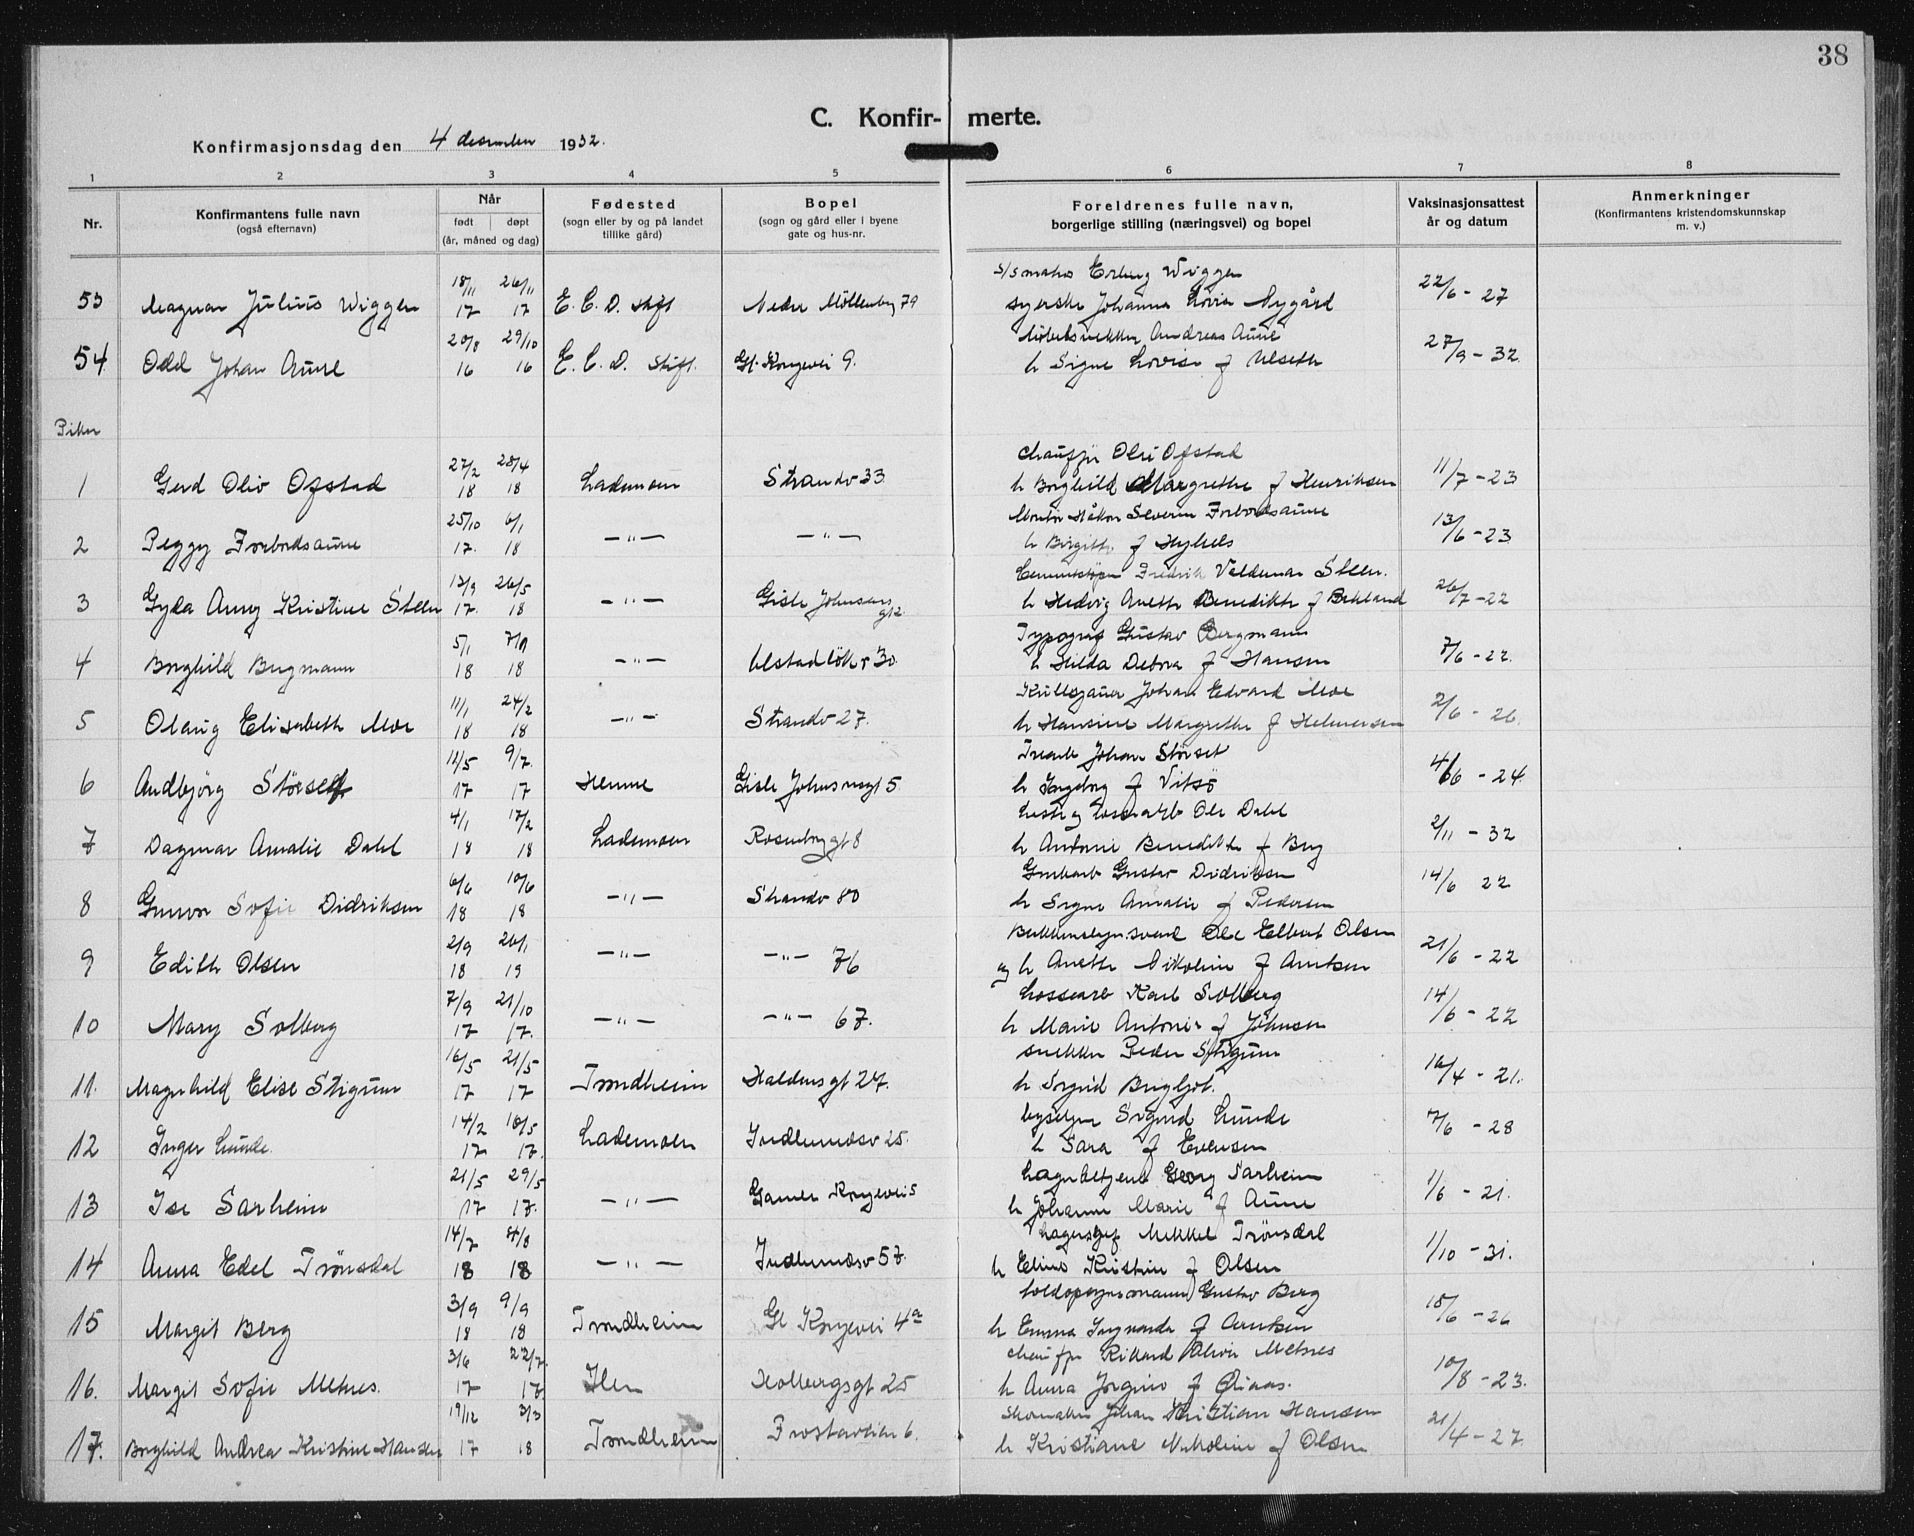 38
C. Konfir- merte.
Konfirmasjonsdag den 4 desember 1932.
1 2 3 4 5 6 7 8
Nr.
Konfirmantens fulle navn
(også efternavn)
Når
født døpt
(år, måned og dag)
Fødested
(sogn eller by og på landet
tillike gård)
Bopel
(sogn og gård eller i byene
gate og hus-nr.
Foreldrenes fulle navn,
borgerlige stilling (næringsvei) og bopel
Vaksinasjonsattest
år og datum
Anmerkninger
(Konfirmantens kristendomskunnskap
m. v.)
18/11 26/11 Erling Wiggen
53 Magnar Julius Wiggen 17 17 E. C. D. stift Nedre Möllenbg 79 syerske Johanna Lovise Nygård 22/6 - 27
20/8 29/10 Andreas Aune
54 Odd Johan Aune 16 16 E. C. D. Stift. Gl. Kongevei 9. h Signe Lovise f Ulseth 27/9 - 32
Piker
27/2 28/4 Chaufför Ole Ofstad
1 Gerd Oliv Ofstad 18 18 Lademoen Strandv 33 h Borghild Margrethe f Henriksen 11/7 - 23
25/10 6/1 Montör Håkon Severin Forbordsaune
2 Peggy Forbordsaune 17. 18 — " — — " — h Birgitte f Hybels 13/6 - 23
13/9 26/5 Fredrik Valdemar Steen.
3 Gyda Anny Kristine Steen 17. 18 — " — Gisle Johnsens gt 2 h Hedvig Anette Benedikte f Bekland 26/7 - 22
5/1 7/9 Typograf Gustav Bergmann
4 Borghild Bergmann 18 18 — " — Ulstadlökv 30 h Hilda Debora f Hansen 7/6 - 22.
11/1 24/2 Johan Edvard Moe
5 Olaug Elisabeth Moe 18 18 — " — Strandv 27. h Hansine Margrethe f Helmersen 2/6 - 26.
11/5 9/7. Johan Störset
6 Audbjörg Störset 17 17 Hemne Gisle Johnsensgt 5 h Ingeborg f Vitsö 4/6 - 24
4/1 17/2 Laste og lossearb Ole Dahl
7 Dagmar Amalie Dahl 18 18 Lademoen Rosenborggt 8 h Antonie Benedikte f Berg 2/11 - 32
6/6 10/6 Grubarb Gustav Didriksen
8 Gunvor Sofie Didriksen 18 18 — " — Strandv 80 h Signe Amalie f Pedersen 14/6 22
2/9 26/1 Ole Elbert Olsen
9 Edith Olsen 18 19 — " — — " — 76 og h Anette Nikoline f Arntsen 21/6 - 22
7/9 21/10 Lossearb Karl Solberg
10 Mary Solberg 17 17. — " — — " — 67. h Marie Antonie f Johnsen 14/6 - 22
16/5 21/5 snekker Peder Stigum
11. Magnhild Elise Stigum 17 17 Trondheim Haldens gt 27. h Sigrid Bergljot. 16/4 - 21.
14/2 10/5 Sigurd Lunde
12 Inger Lunde. 17 17. Lademoen Indherredsv 25. h Sara f Evensen 7/6 - 28
21/5 29/5 Lagerbetjent Georg Sarheim
13 Ise Sarheim 17 17. — " — Gamle Kongevei 5 h Johanne Marie f Aune 1/6 - 21.
14/7 4/8 Lagersjef Mikkel Trönsdal
14 Anna Edel Trönsdal 18 18 — " — Indherredsv 57. h Eline Kristine f Olsen 1/10 - 31.
3/9 9/9 toldopsynsmann Gustav Berg
15 Margit Berg 18 18 Trondheim Gl Kongevei 4a h Emma Ingvarda f Arntsen 15/6 - 26
3/6 22/7. Chaufför Rikard Metnes
16. Margit Sofie Metnes. 17 17 Ilen Holbergsgt 25 h Anna Jorgine f Öiaas. 10/8 - 23.
19/12 3/3 Skomaker Johan Kristian Hansen
17. Borghild Andrea Kristine Hansen 17 18 Trondheim Frostaveien 6. h Kristiane Nikoline f Olsen 21/4 - 27